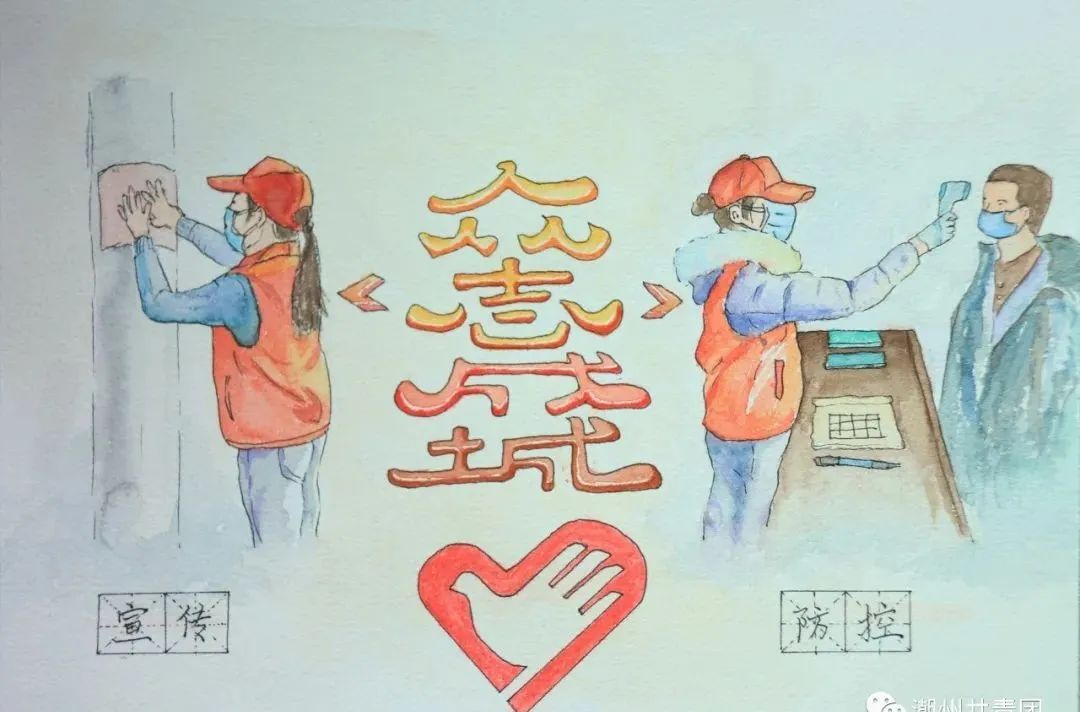 众
志
成
城
宣传
防控
潮州共青团